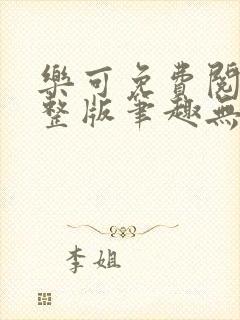 樂可免費閱
整版筆趣無
李姐